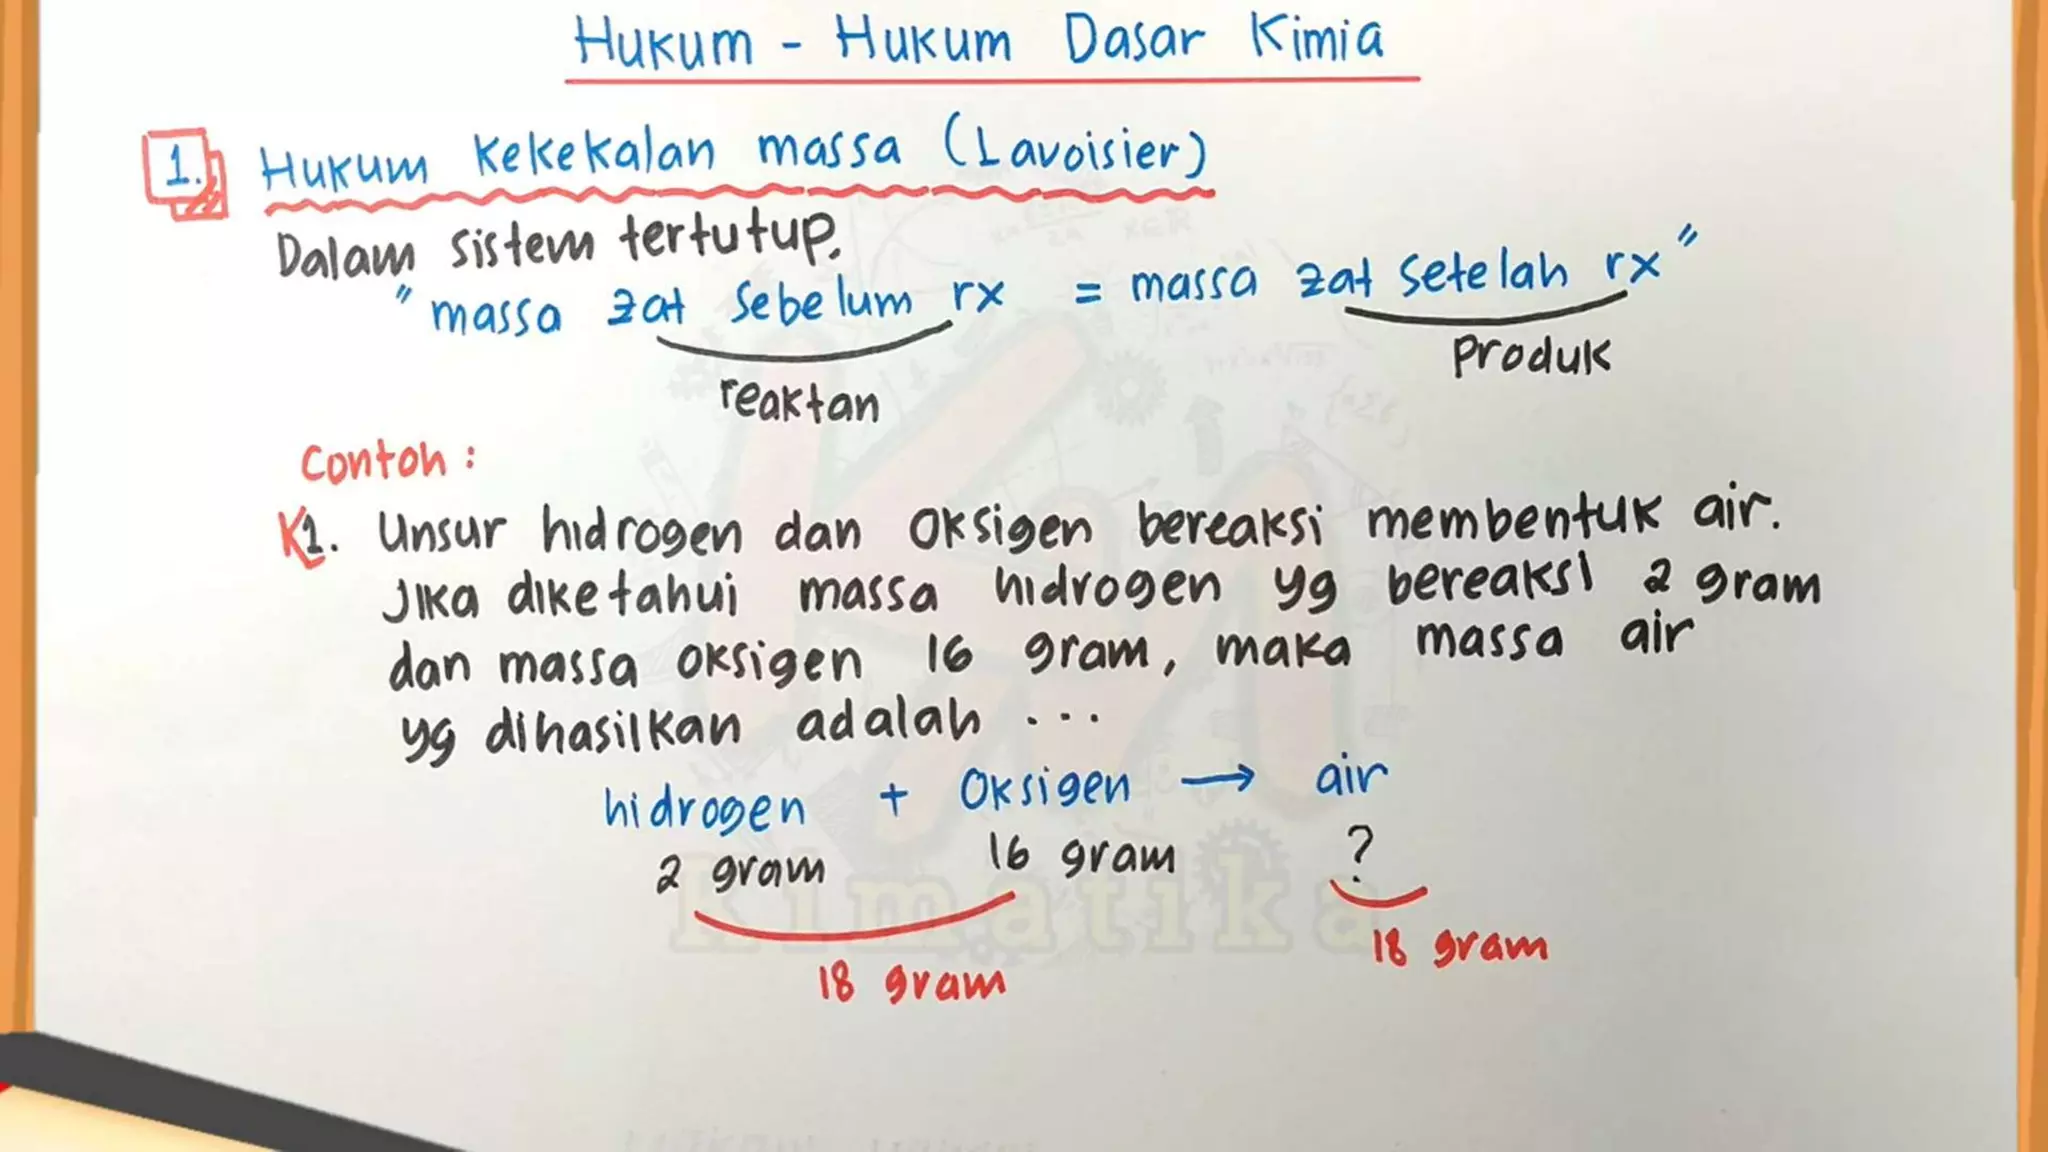 Hukum - Hukum Dasar Kimia
1. Hukum Kekekalan massa (Lavoisier)
Dalam sistem tertutup.
"massa zat sebelum rx = massa zat setelah rx"
reaktan
Produk
Contoh :
K1. Unsur hidrogen dan Oksigen bereaksi membentuk air.
Jika diketahui massa hidrogen yg bereaksi 2 gram
dan massa oksigen 16 gram, maka massa air
yg dihasilkan adalah ...
hidrogen + Oksigen → air
2 gram 16 gram ?
18 gram 18 gram
Kimatika